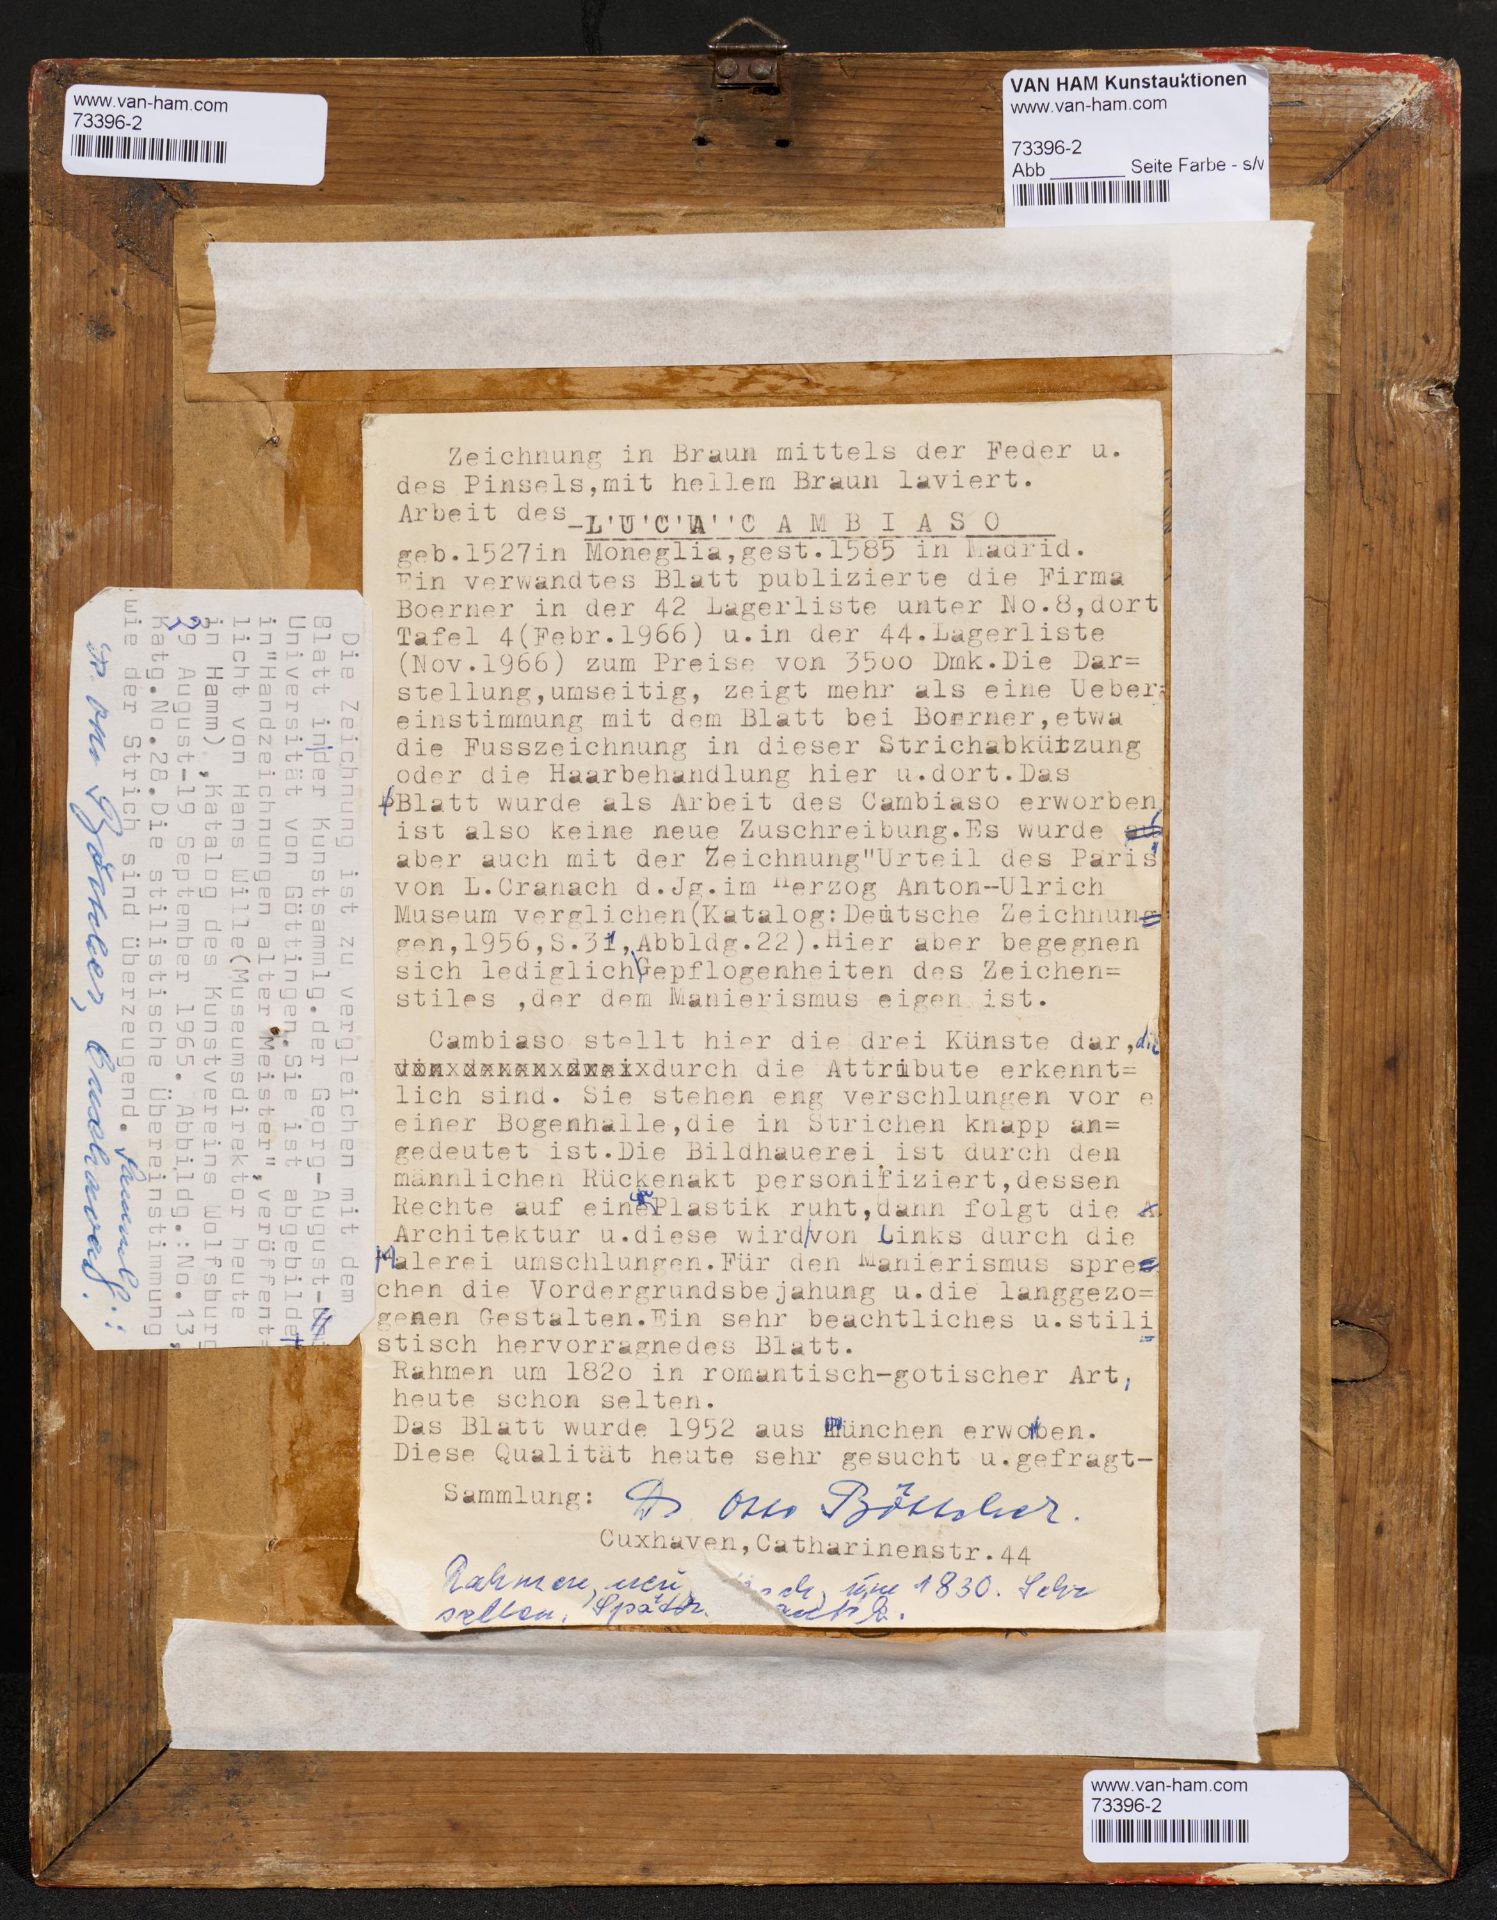 www.van-ham.com
73396-2
VAN HAM Kunstauktionen
www.van-ham.com
73396-2
Abb ______ Seite Farbe - s/
Zeichnung in Braun mittels der Feder u.
des Pinsels,mit hellem Braun laviert.
Arbeit des LUCA CAMBIASO
geb.1527in Moneglia,gest.1585 in Madrid.
Ein verwandtes Blatt publizierte die Firma
Boerner in der 42 Lagerliste unter No.8,dort
Tafel 4(Febr.1966) u.in der 44.Lagerliste
(Nov.1966) zum Preise von 35oo Dmk.Die Dar=
stellung,umseitig, zeigt mehr als eine Ueber=
einstimmung mit dem Blatt bei Boerner,etwa
die Fusszeichnung in dieser Strichabkürzung
oder die Haarbehandlung hier u.dort.Das
Blatt wurde als Arbeit des Cambiaso erworben
ist also keine neue Zuschreibung.Es wurde
aber auch mit der Zeichnung"Urteil des Paris"
von L.Cranach d.Jg.im Herzog Anton-Ulrich
Museum verglichen(Katalog:Deutsche Zeichnun=
gen,1956,S.31,Abbldg.22).Hier aber begegnen
sich lediglich Gepflogenheiten des Zeichen=
stiles ,der dem Manierismus eigen ist.
Cambiaso stellt hier die drei Künste dar, die
durch die Attribute erkennt=
lich sind. Sie stehen eng verschlungen vor e
einer Bogenhalle,die in Strichen knapp an=
gedeutet ist.Die Bildhauerei ist durch den
männlichen Rückenakt personifiziert,dessen
Rechte auf einer Plastik ruht,dann folgt die
Architektur u.diese wird von Links durch die
Malerei umschlungen.Für den Manierismus spre=
chen die Vordergrundsbejahung u.die langgezo=
genen Gestalten.Ein sehr beachtliches u.stili=
stisch hervorragnedes Blatt.
Rahmen um 182o in romantisch-gotischer Art,
heute schon selten.
Das Blatt wurde 1952 aus München erworben.
Diese Qualität heute sehr gesucht u.gefragt-
Sammlung: Dr Otto Böttcher.
Cuxhaven,Catharinenstr.44
Rahmen, neu um 1830. Sehr
selten.
Die Zeichnung ist zu vergleichen mit dem
Blatt in der Kunstsammlg.der Georg-August-
Universität von Göttingen.Sie ist abgebildet
in"Handzeichnungen alter Meister",veröffent=
licht von Hans Wille(Museumsdirektor heute
in Hamm) ,Katalog des Kunstvereins Wolfsburg
29 August-19 September 1965. Abbildg.:No.13,
Katg.No.28.Die stilistische Übereinstimmung
wie der Strich sind überzeugend. Samml.:
Dr. Otto Böttcher, Cuxhaven.
www.van-ham.com
73396-2